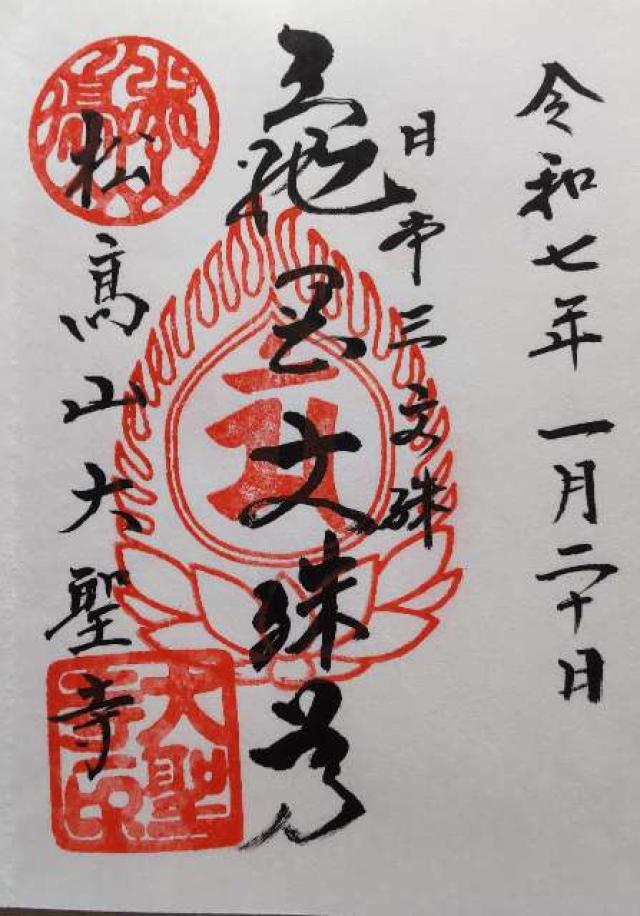 令和七年一月二十日
日本三文殊
亀岡文殊尊
松高山大聖寺
大聖寺印